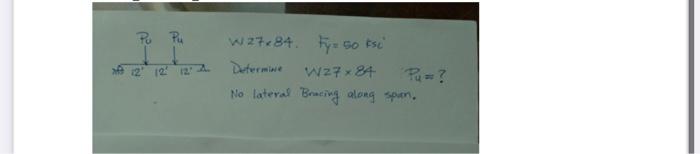 Pu Pu W27x84. Fy = 50 ksi
12' 12' 12' Determine W27x84 Pu = ?
No lateral Bracing along span.